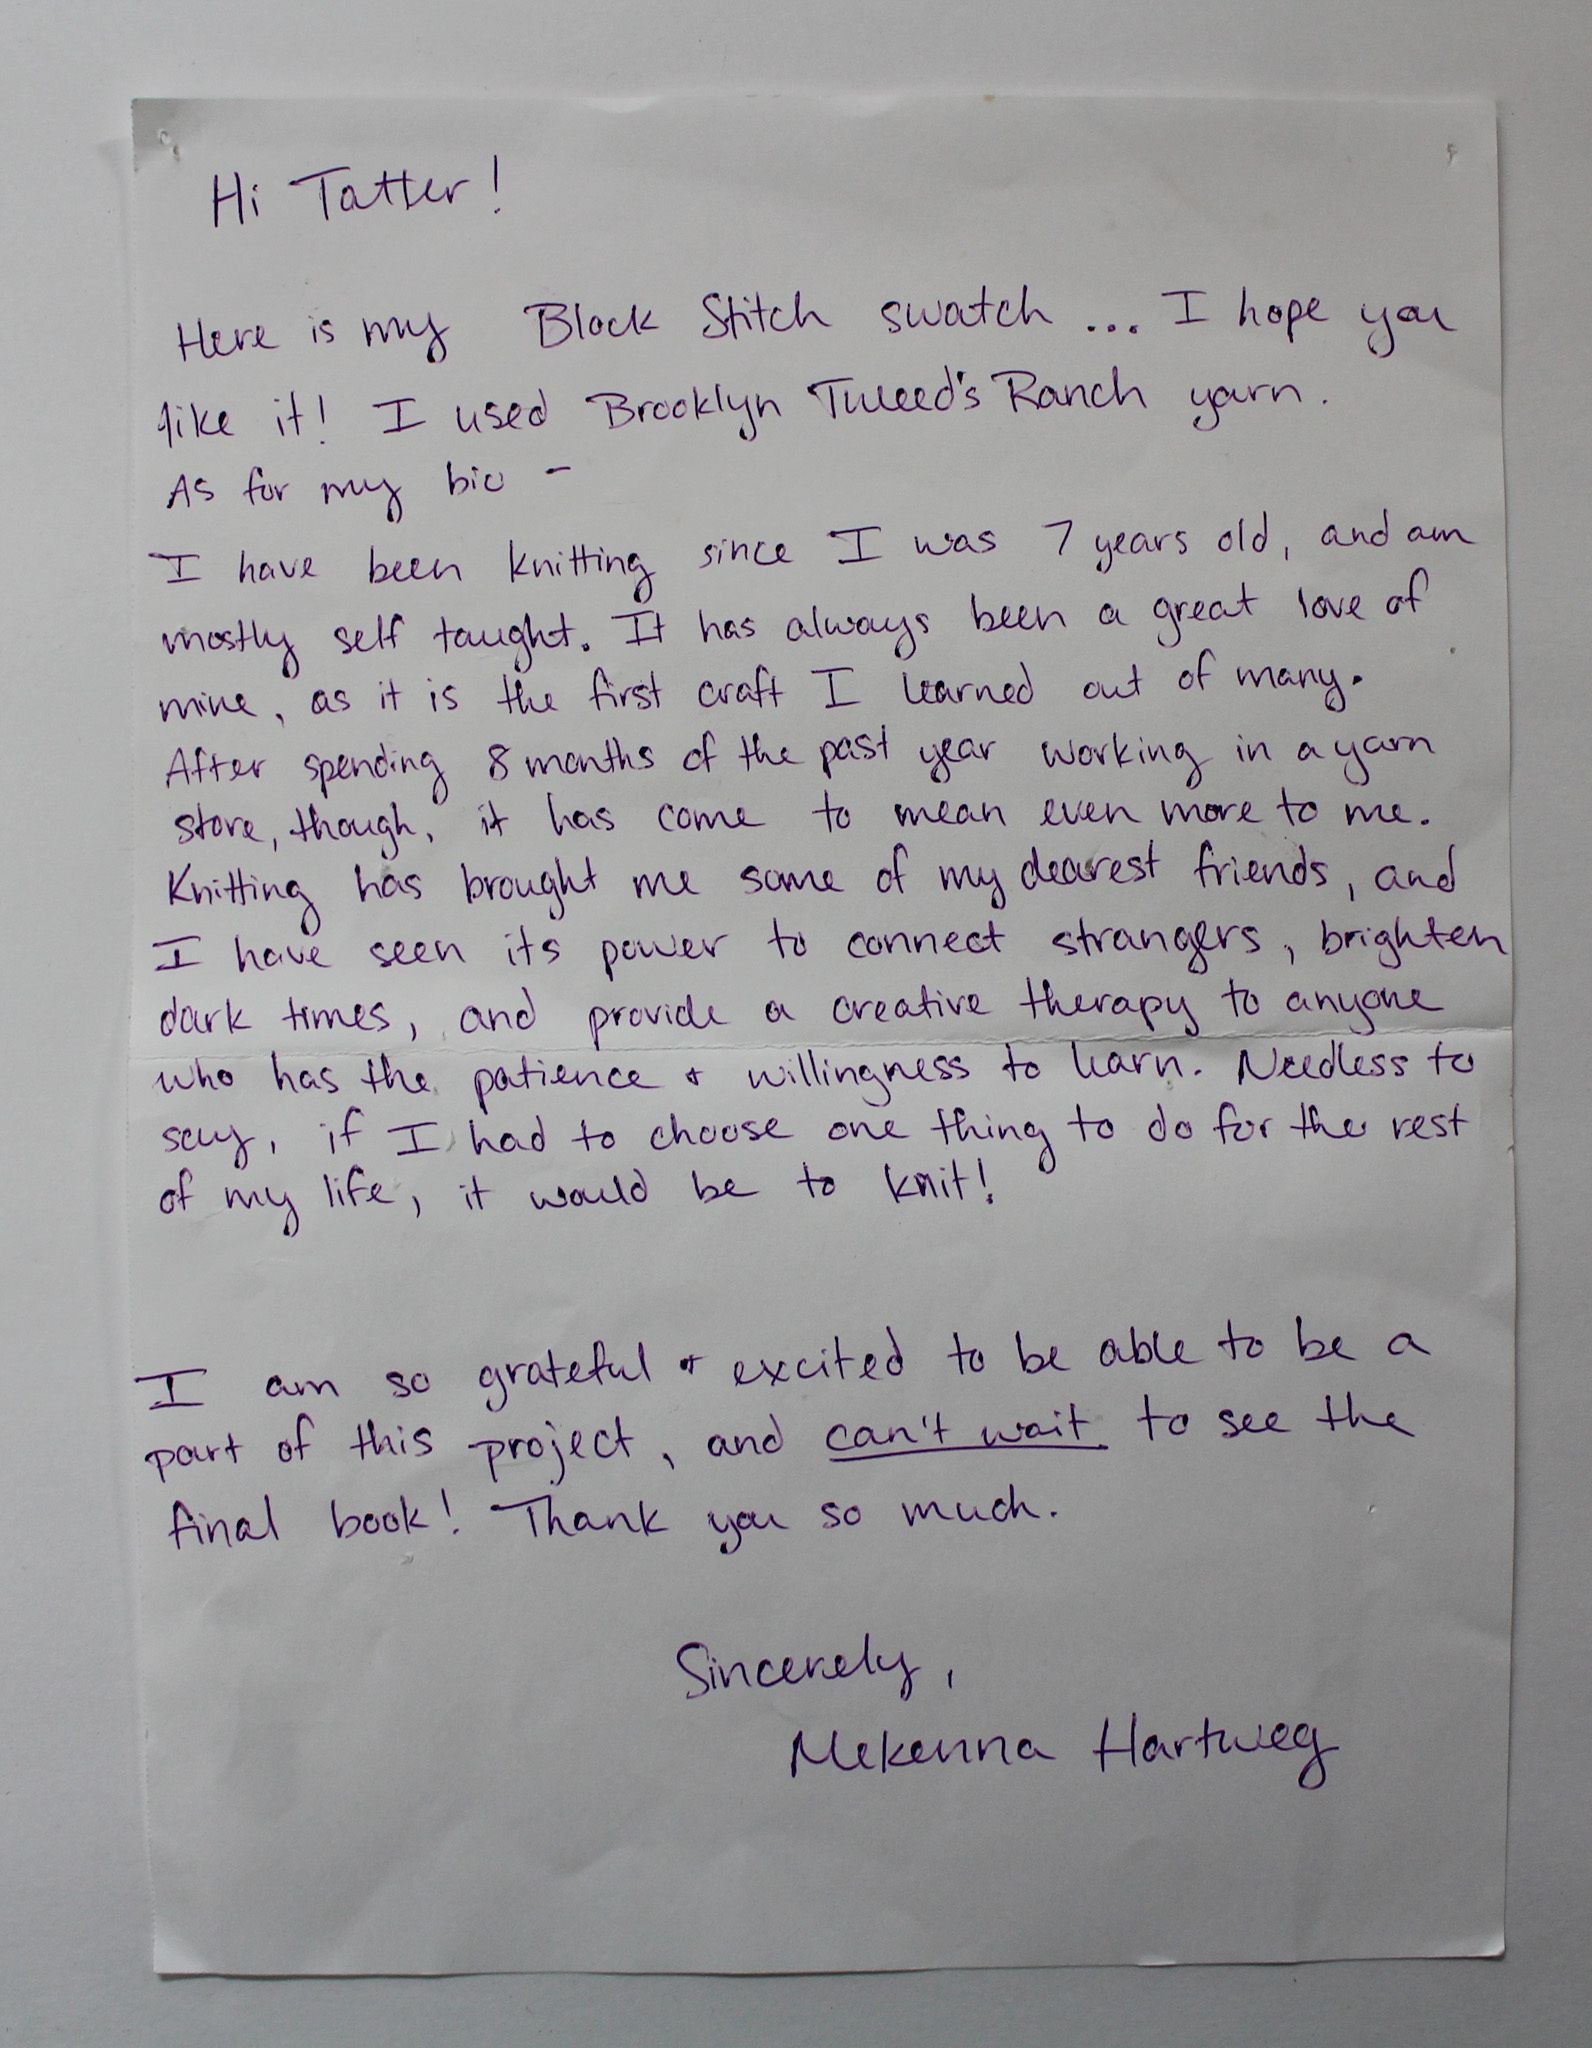 Hi Tatter!
Here is my Block Stitch swatch... I hope you
like it! I used Brooklyn Tweed's Ranch yarn.
As for my bio -
I have been knitting since I was 7 years old, and am
mostly self taught. It has always been a great love of
mine, as it is the first craft I learned out of many.
After spending 8 months of the past year working in a yarn
store, though, it has come to mean even more to me.
Knitting has brought me some of my dearest friends, and
I have seen its power to connect strangers, brighten
dark times, and provide a creative therapy to anyone
who has the patience & willingness to learn. Needless to
say, if I had to choose one thing to do for the rest
of my life, it would be to knit!
I am so grateful & excited to be able to be a
part of this project, and can't wait to see the
final book! Thank you so much.
Sincerely,
Mekenna Hartweg